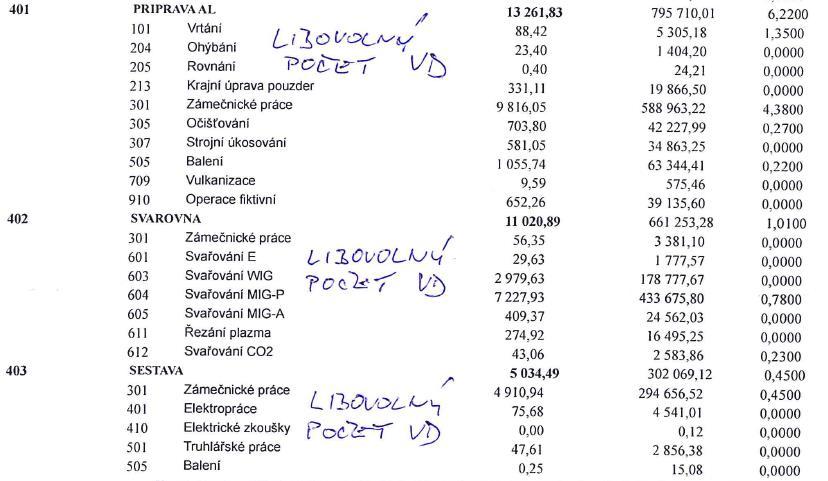 401 PRIPRAVA AL 13 261,83 795 710,01 6,2200
101 Vrtání 88,42 5 305,18 1,3500
LIBOVOLNÝ
204 Ohýbání 23,40 1 404,20 0,0000
POČET VD
205 Rovnání 0,40 24,21 0,0000
213 Krajní úprava pouzder 331,11 19 866,50 0,0000
301 Zámečnické práce 9 816,05 588 963,22 4,3800
305 Očišťování 703,80 42 227,99 0,2700
307 Strojní úkosování 581,05 34 863,25 0,0000
505 Balení 1 055,74 63 344,41 0,2200
709 Vulkanizace 9,59 575,46 0,0000
910 Operace fiktivní 652,26 39 135,60 0,0000
402 SVAROVNA 11 020,89 661 253,28 1,0100
301 Zámečnické práce 56,35 3 381,10 0,0000
601 Svařování E 29,63 1 777,57 0,0000
LIBOVOLNÝ
603 Svařování WIG 2 979,63 178 777,67 0,0000
POČET VD
604 Svařování MIG-P 7 227,93 433 675,80 0,7800
605 Svařování MIG-A 409,37 24 562,03 0,0000
611 Řezání plazma 274,92 16 495,25 0,0000
612 Svařování CO2 43,06 2 583,86 0,2300
403 SESTAVA 5 034,49 302 069,12 0,4500
301 Zámečnické práce 4 910,94 294 656,52 0,4500
LIBOVOLNÝ
401 Elektropráce 75,68 4 541,01 0,0000
410 Elektrické zkoušky 0,00 0,12 0,0000
POČET VD
501 Truhlářské práce 47,61 2 856,38 0,0000
505 Balení 0,25 15,08 0,0000